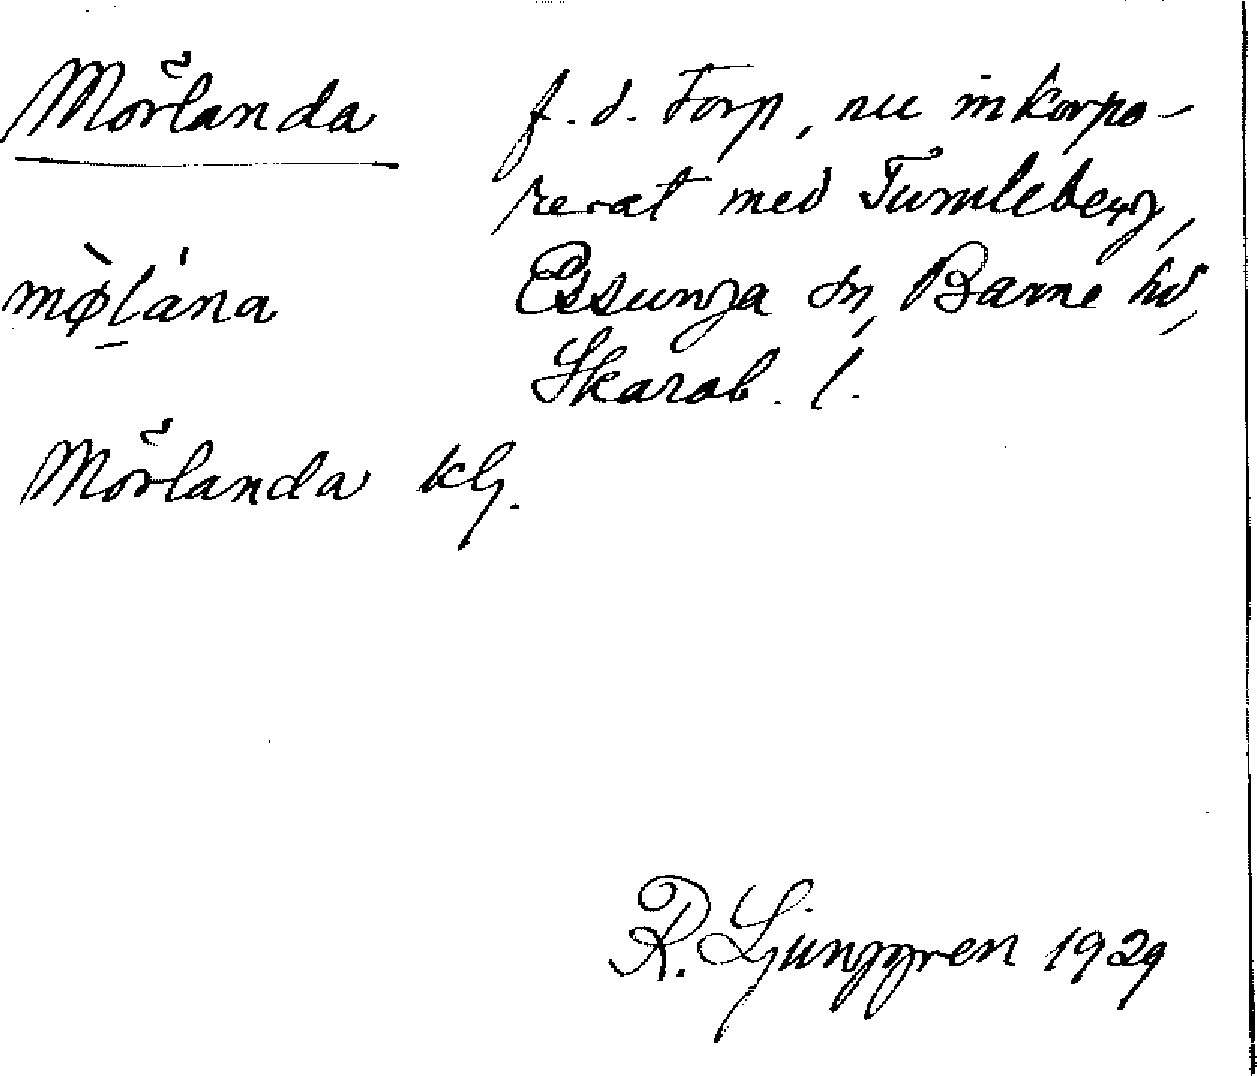 Mörlanda f. d. Torp, nu inkorpo-
rerat med Tumleberg,
mø̀lána Essunga sn, Barne hd,
Skarab. l.
Mörlanda kly.
R. Ljunggren 1929